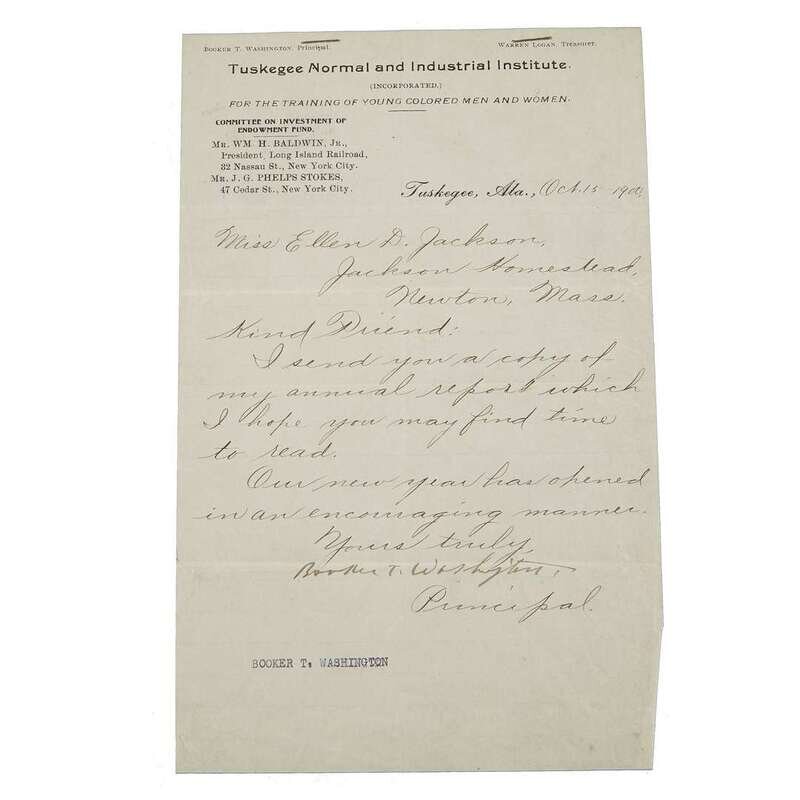 BOOKER T. WASHINGTON, Principal. WARREN LOGAN, Treasurer.
Tuskegee Normal and Industrial Institute.
(INCORPORATED.)
FOR THE TRAINING OF YOUNG COLORED MEN AND WOMEN.
COMMITTEE ON INVESTMENT OF
ENDOWMENT FUND.
MR. WM. H. BALDWIN, JR.,
President Long Island Railroad,
32 Nassau St., New York City.
MR. J. G. PHELPS STOKES,
47 Cedar St., New York City.
Tuskegee, Ala., Oct. 15 1900,
Miss Ellen D. Jackson,
Jackson Homestead,
Newton, Mass.
Kind Friend:
I send you a copy of
my annual report which
I hope you may find time
to read.
Our new year has opened
in an encouraging manner.
Yours truly,
Booker T. Washington,
Principal.
BOOKER T. WASHINGTON